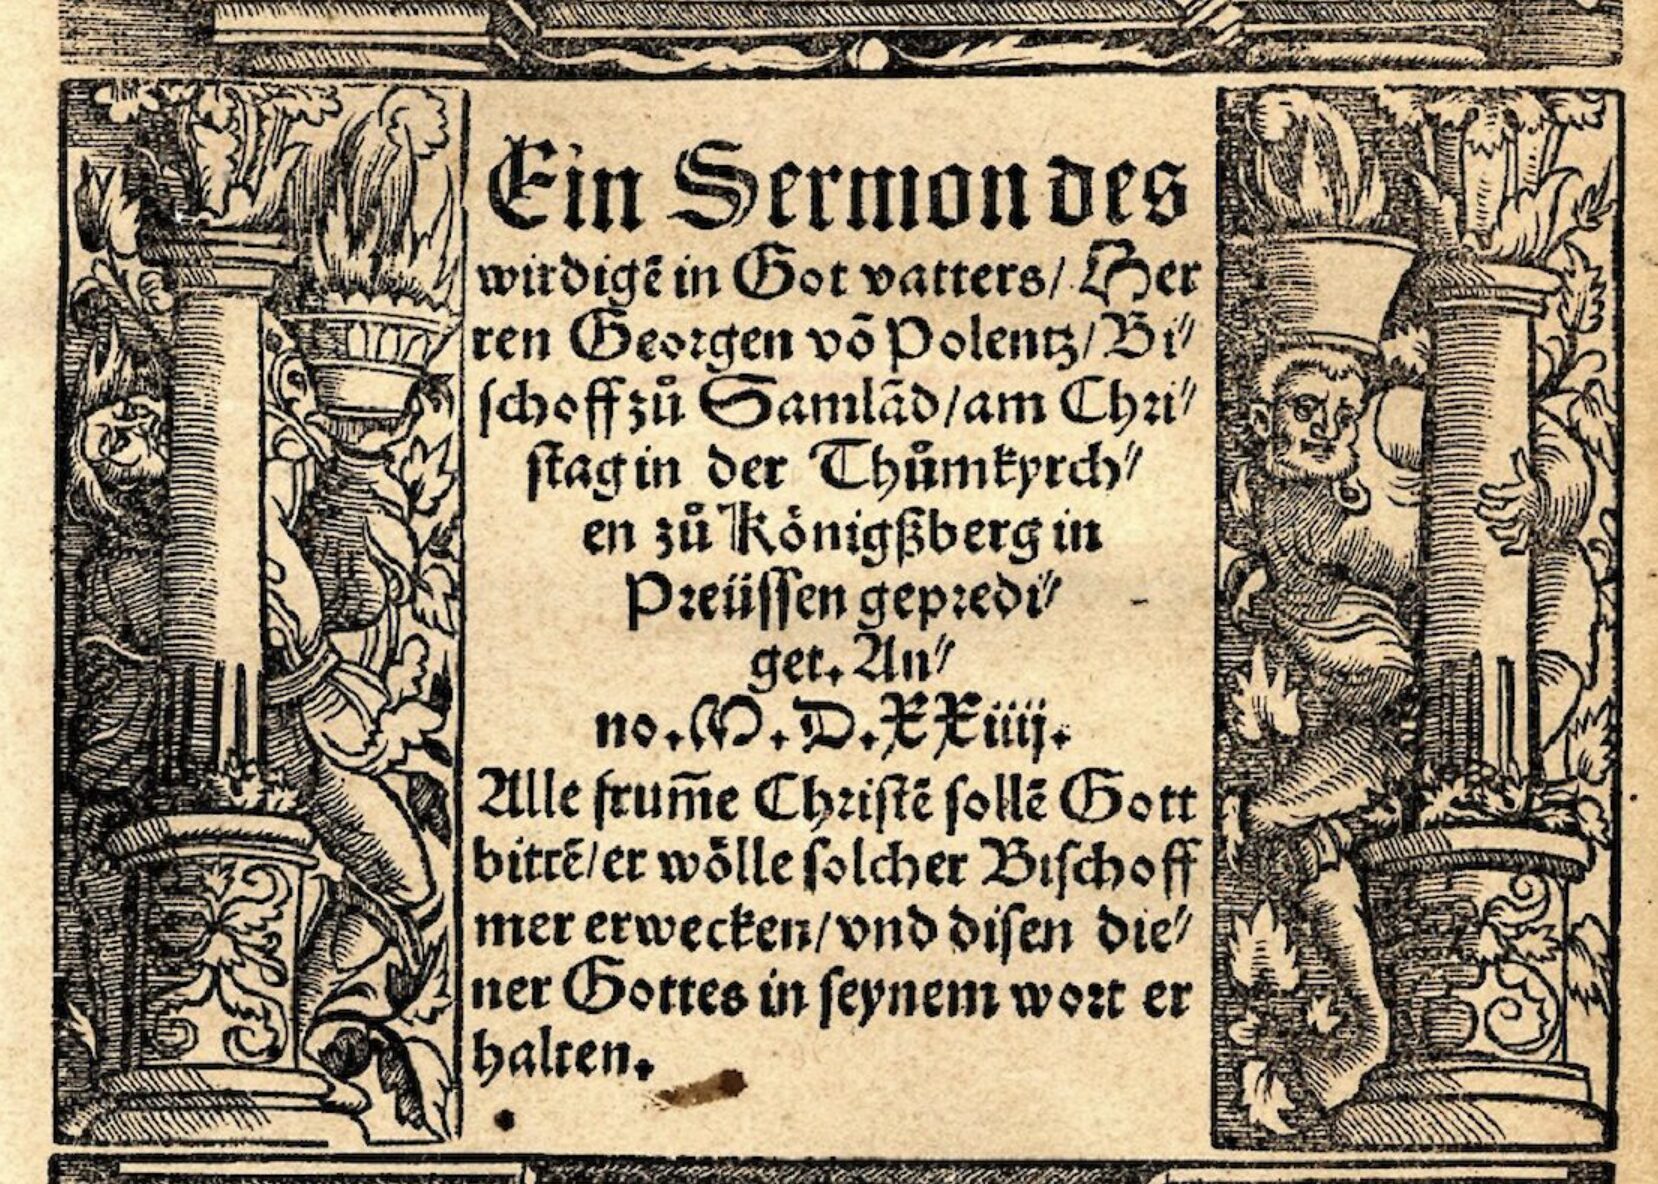 Ein Sermon des
wirdigē in Got vatters/ Her
ren Georgen võ Polentz/ Bi⸗
ſchoff zů Samlād/ am Chri⸗
ſtag in der Thůmkyrch⸗
en zů Königßberg in
Preüſſen gepredi⸗
get. An⸗
no. M. D. XXiiij.
Alle frum̄e Chriſtē ſollē Gott
bittē/ er wölle ſolcher Biſchoff
mer erwecken/ vnd diſen die⸗
ner Gottes in ſeynem wort er
halten.